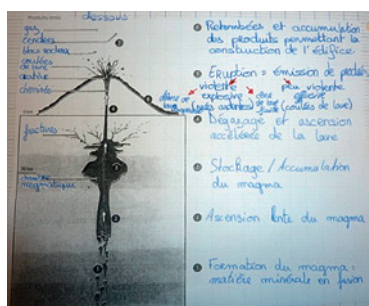 Produits émis
dessous
gaz
cendres
blocs rocheux
coulées
de lave
cratère
cheminée
fractures
chambre
magmatique
6 Retombées et accumulation
des produits permettant la
construction de l'édifice
5 Eruption = émission de produits
violente peu violente
explosive effusive
(nuées ardentes) (coulées de lave)
4 Dégazage et ascension
accélérée de la lave
3 Stockage / Accumulation
du magma
2 Ascension lente du magma
1 Formation du magma :
matière minérale en fusion